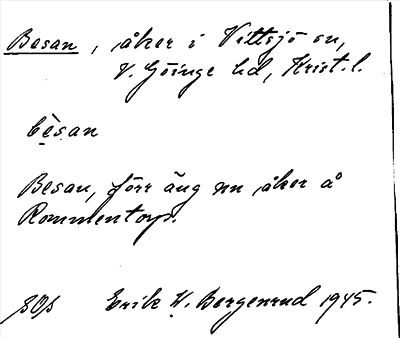 Besan, åker i Vittsjö sn,
V. Göinge hd, Krist. l.
bèsan
Besan, förr äng nu åker å
Rommentorp.
SOs Erik W. Bergenrud 1945.